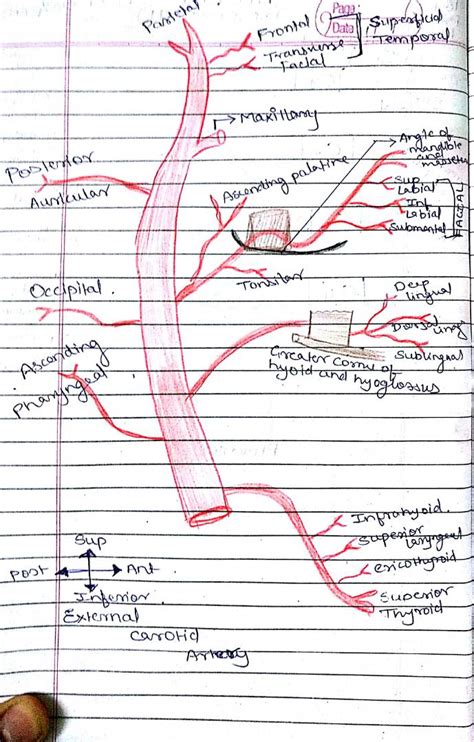 Page
Date
Parietal
Frontal
Transverse
Facial
Superficial
Temporal
Maxillary
Angle of
mandible
and
masseter
Posterior
Auricular
Ascending palatine
Sup
Labial
Inf
Labial
Submental
FACIAL
Tonsilar
Occipital
Deep
lingual
Dorsal ling
Sublingual
Greater cornu of
hyoid and hyoglossus
Ascending
Pharyngeal
Infrahyoid
Superior
laryngeal
cricothyroid
Superior
Thyroid
Sup
Post
Ant
Inferior
External
carotid
Artery